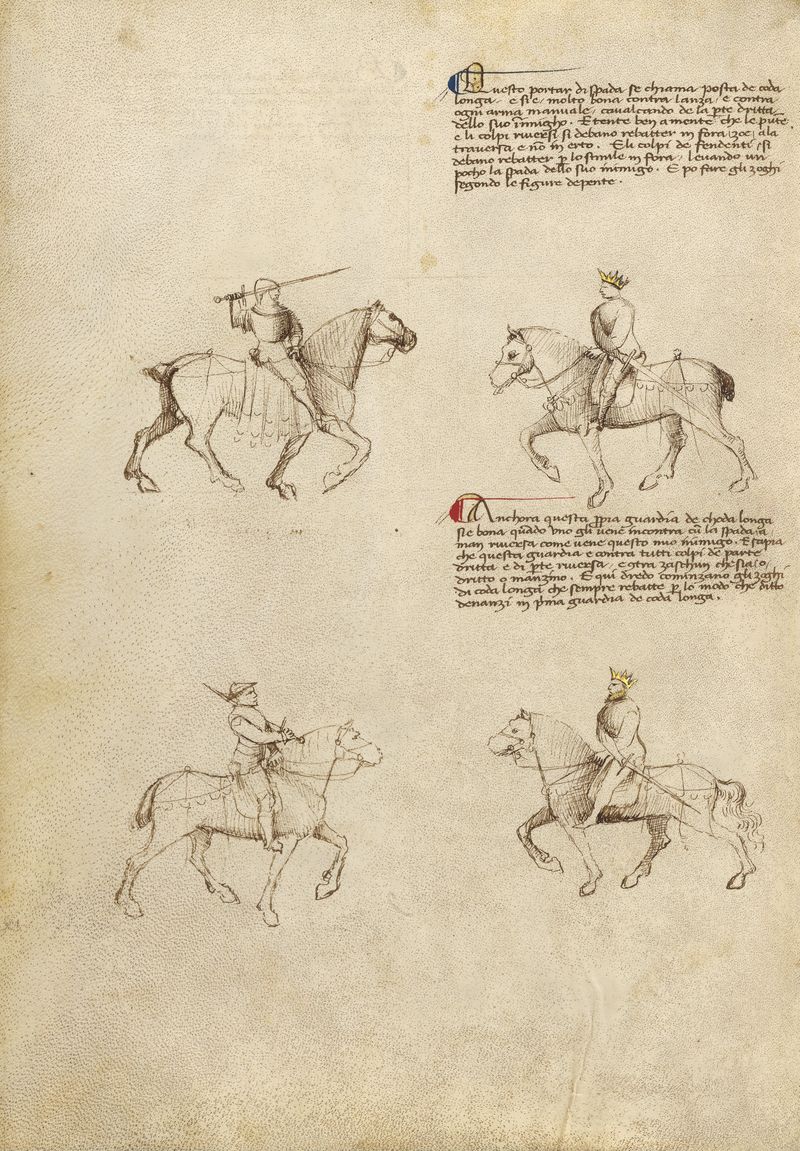 Questo portar di spada se chiama posta de coda
longa e si e molto bona contra lanza e contra
ogni arma manuale, cavalcando de la p̄te dritta
dello suo inimigho. E tente ben a mente che le punte
e li colpi riversi si debano rebatter in fora, zoe, ala
traversa e nō in erto. E li colpi de fendenti si
debano rebatter p lo simile in fora, levando un
pocho la spada dello suo inimigo. E po fare gli zoghi
segondo le figure depente.
Anchora questa p̄pia guardia de choda longa
si e bona quādo uno gli vene incontra cū la spada a
man riversa come vene questo mio inimigo. E sapia
che questa guardia e contra tutti colpi de parte
dritta e di p̄te riversa, e ɔtra zaschun che sia, o
dritto o manzino. E qui dredo cominzano gli zoghi
di coda longa che sempre rebatte p lo modo che ditto
denanzi in p̄ma guardia de coda longa.